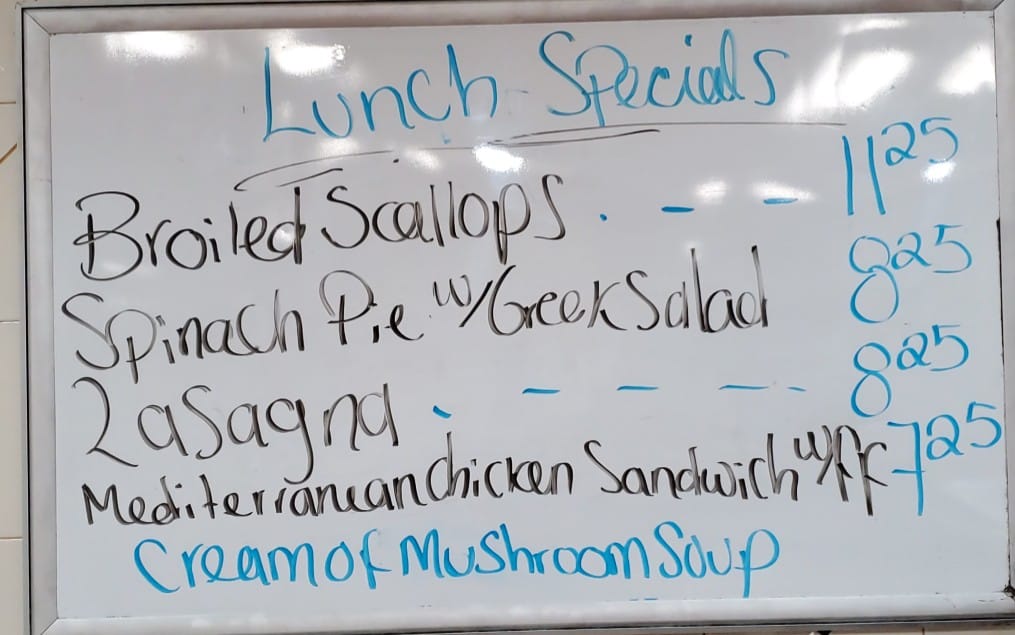 Lunch Specials
Broiled Scallops . - - 11 25
Spinach Pie w/Greek Salad 8 25
Lasagna . - - - - 8 25
Mediterranean Chicken Sandwich w/FF 7 25
Cream of Mushroom Soup